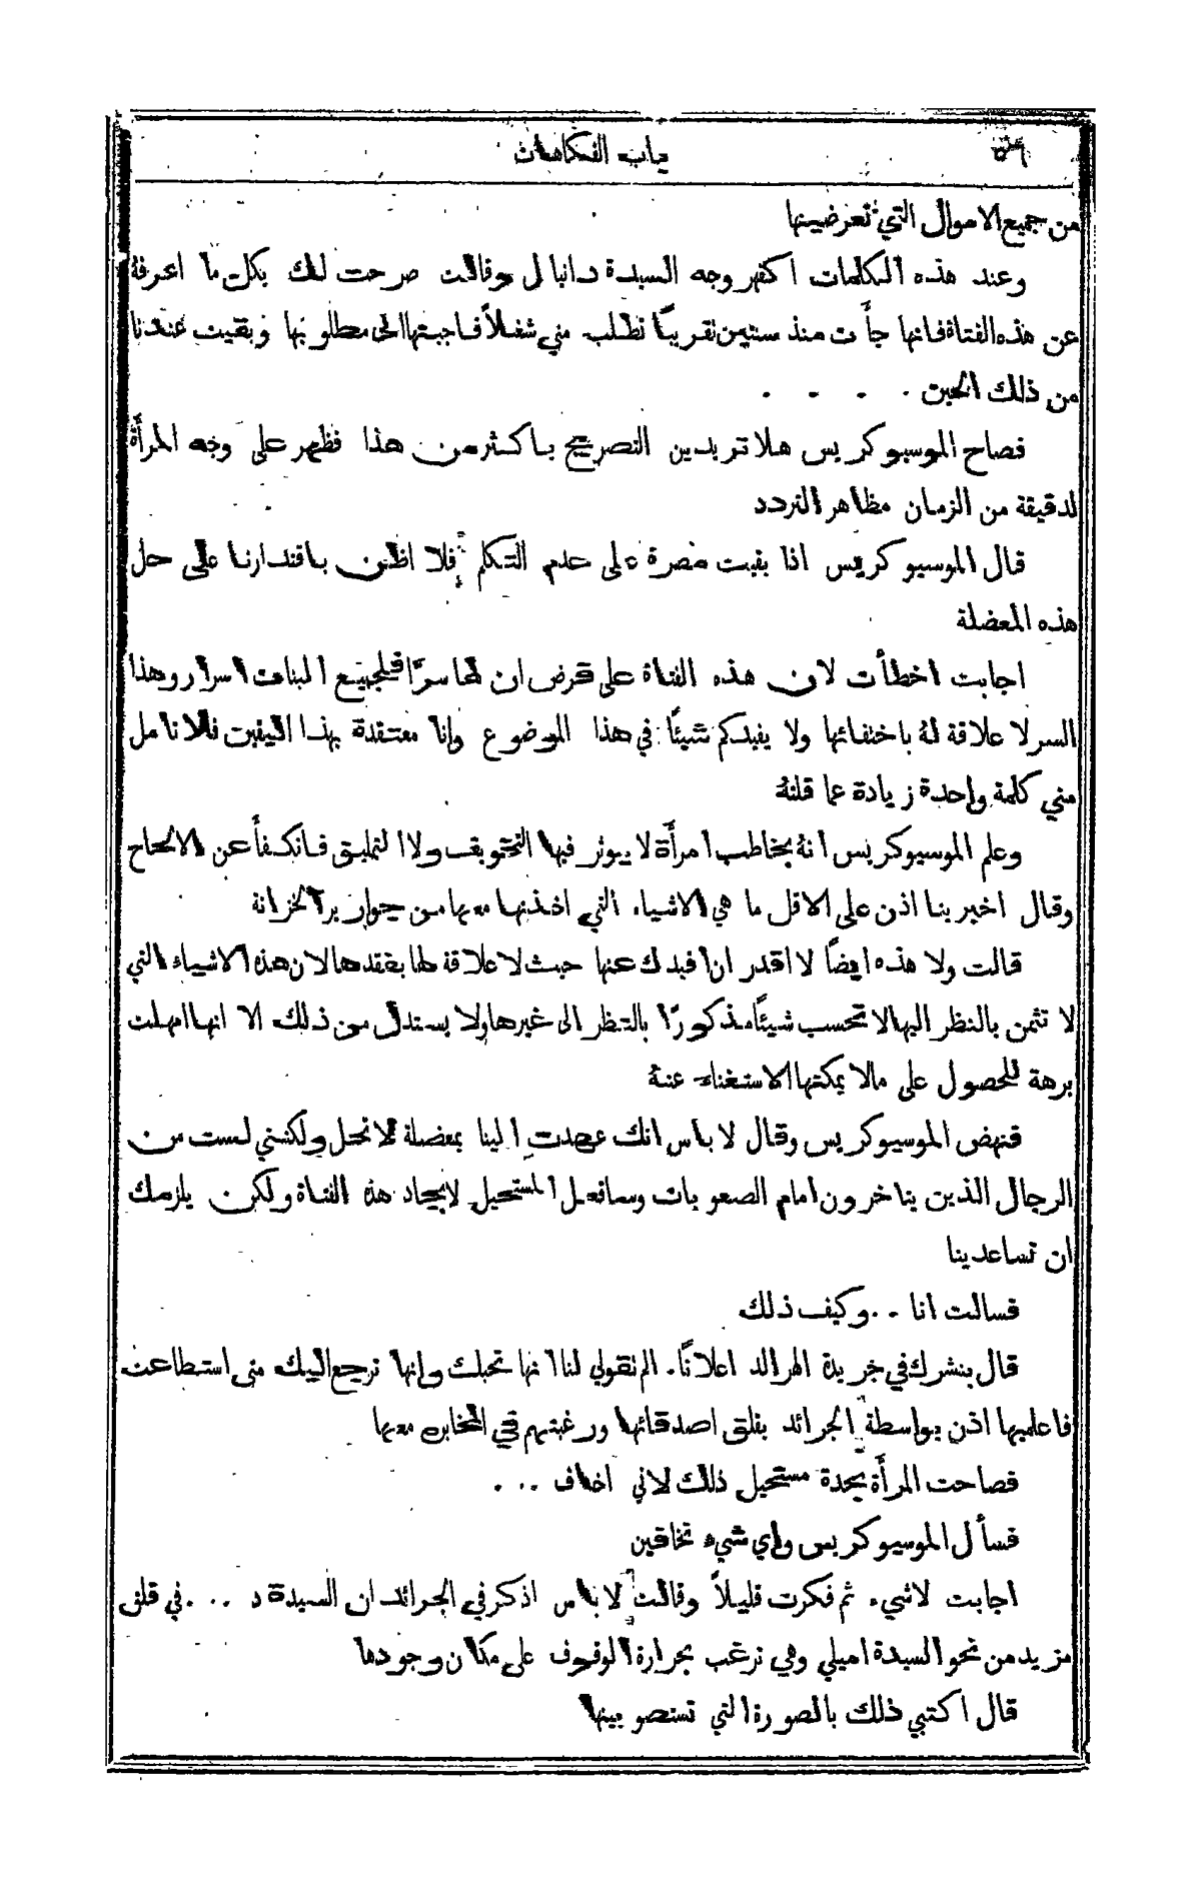 باب الفكاهات
من جميع الاموال التي تعرضينها
وعند هذه الكلمات اكفهر وجه السيدة دانيال وقالت صرحت لك بكل ما اعرفهُ
عن هذه الفتاة فانها جأت منذ سنتين تقريبًا تطلب مني شغلاً فاجبتها الى مطلوبها وبقيت عندنا
من ذلك الحين . . . .
فصاح الموسيو كريس هلا تريدين التصريح باكثر من هذا فظهر على وجه المرأة
لدقيقة من الزمان مظاهر التردد
قال الموسيو كريس اذا بقيت مصرة على عدم التكلم فلا اظن باقتدارنا على حل
هذه المعضلة
اجابت اخطأت لان هذه الفتاة على فرض ان لها سرًا فلجميع البنات اسرار وهذا
السر لا علاقة لهُ باختفائها ولا يفيدكم شيئًا في هذا الموضوع وانا معتقدة بهذا اليقين فلا تامل
مني كلمة واحدة زيادة عما قلتهُ
وعلم الموسيو كريس انهُ يخاطب امرأة لا يوثر فيها التخويف ولا التمليق فانكفأ عن الالحاح
وقال اخبرينا اذن على الاقل ما هي الاشياء التي اخذتها معها من جوارير الخزانة
قالت ولا هذه ايضًا لا اقدر ان افيدك عنها حيث لا علاقة لها بفقدها لان هذه الاشياء التي
لا تثمن بالنظر اليها لا تحسب شيئًا مذكورًا بالنظر الى غيرها ولا يستدل من ذلك الا انها امهلت
برهة للحصول على ما لا يمكنها الاستغناء عنهُ
فنهض الموسيو كريس وقال لا باس انك عهدت الينا بمعضلة لا تحل ولكنني لست من
الرجال الذين يتاخرون امام الصعوبات وسافعل المستحيل لايجاد هذه الفتاة ولكن يلزمك
ان تساعدينا
فسالت انا . . وكيف ذلك
قال بنشرك في جريدة الهرالد اعلانًا . الم تقولي لنا انها تحبك وانها ترجع اليك متى استطاعت
فاعلميها اذن بواسطة الجرائد بقلق اصدقائها ورغبتهم في المخابرة معها
فصاحت المرأة بحدة مستحيل ذلك لاني اخاف . . .
فسأل الموسيو كريس واي شيء تخافين
اجابت لا شيء ثم فكرت قليلاً وقالت لا باس اذكر في الجرائد ان السيدة د . . . في قلق
مزيد من نحو السيدة اميلي وهي ترغب بحرارة الوقوف على مكان وجودها
قال اكتبي ذلك بالصورة التي تستصوبينها